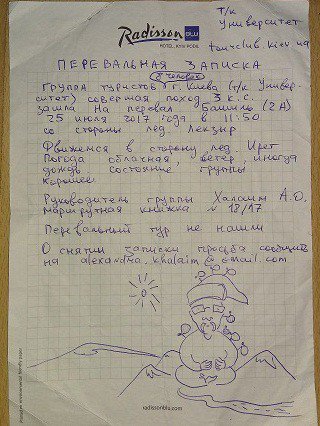 т/к
Университет
tourclub.kiev.ua
Radisson BLU
HOTEL, KYIV PODIL
ПЕРЕВАЛЬНАЯ ЗАПИСКА
8 человек
Группа туристов г. Киева (т/к Универ-
ситет) совершая поход 3 к.с.
зашла на перевал Башиль (2А)
25 июля 2017 года в 11:50
со стороны лед. Лекзыр
Движемся в сторону лед.
Погода облачная, ветер, иногда
дождь состояние группы
хорошее
Руководитель группы Халаим А.О.
маршрутная книжка № 18/17
Перевальный тур не нашли
О снятии записки просьба сообщить
на alexandra.khalaim@gmail.com
radissonblu.com